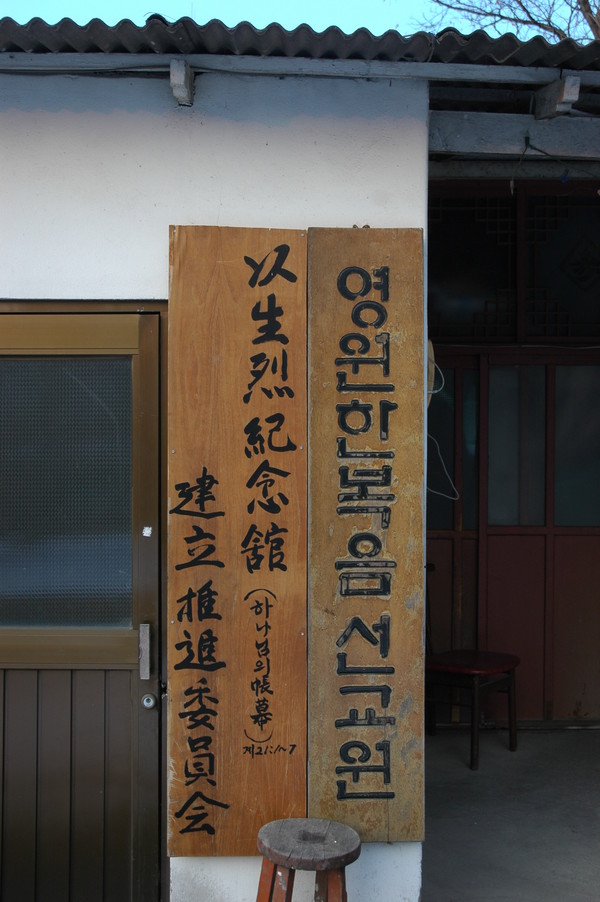 영원한복음선교원
以生烈紀念舘(하나님의帳幕)
계21:1~7
建立推進委員会